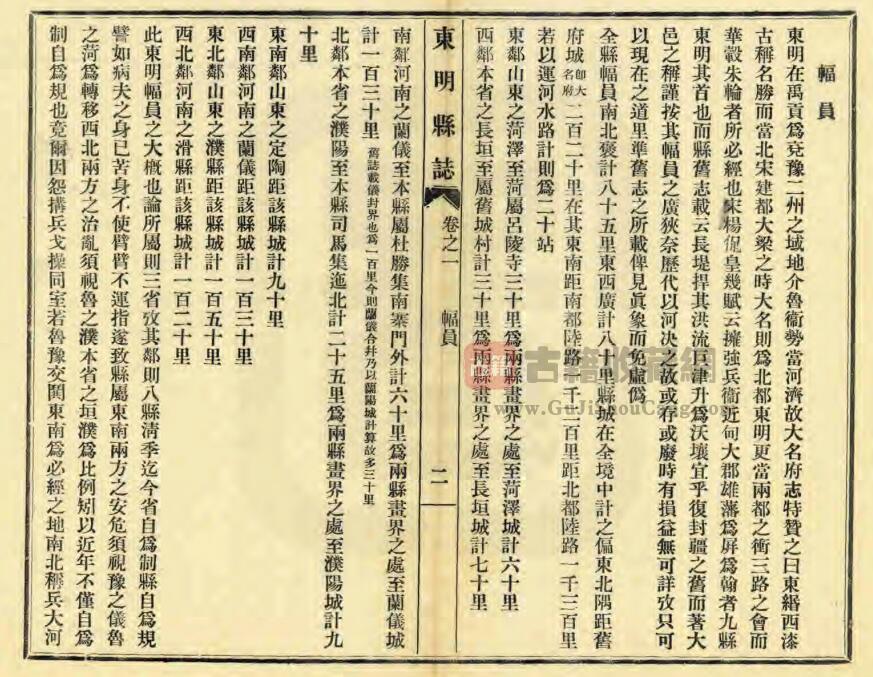 幅員
東明在禹貢爲兗豫二州之域地介魯衞勢當河濟故大名府志特贊之曰東緡西漆
古稱名勝而當北宋建都大梁之時大名則爲北都東明更當兩都之衝三路之會而
華轂朱輪者所必經也宋楊侃皇幾賦云擁強兵衞近甸大郡雄藩爲屏爲翰者九縣
東明其首也而縣舊志載云長堤捍其洪流巨津升爲沃壤宜乎復封疆之舊而著大
邑之稱謹按其幅員之廣狹奈歷代以河决之故或存或廢時有損益無可詳攷只可
以現在之道里準舊志之所載俾見眞象而免虛爲
全縣幅員南北袤計八十五里東西廣計八十里縣城在全境中計之偏東北隅距舊
府城卽大名府二百二十里在其東南距南都陸路一千二百里距北都陸路一千三百里
若以運河水路計則爲二十站
東鄰山東之菏澤至菏屬呂陵寺三十里爲兩縣畫界之處至菏澤城計六十里
西鄰本省之長垣至屬舊城村計三十里爲兩縣畫界之處至長垣城計七十里
東明縣誌
卷之一
幅員
二
南鄰河南之蘭儀至本縣屬杜勝集南寨門外計六十里爲兩縣畫界之處至蘭儀城
計一百三十里舊誌載儀封界也爲一百里今則蘭儀合幷乃以蘭陽城計算故多三十里
北鄰本省之濮陽至本縣司馬集迤北計二十五里爲兩縣畫界之處至濮陽城計九
十里
東南鄰山東之定陶距該縣城計九十里
西南鄰河南之蘭儀距該縣城計一百三十里
東北鄰山東之濮縣距該縣城計一百五十里
西北鄰河南之滑縣距該縣城計一百二十里
此東明幅員之大槪也論所屬則三省攷其鄰則八縣淸季迄今省自爲制縣自爲規
譬如病夫之身已苦身不使臂臂不運指遂致縣屬東南兩方之安危須視豫之儀魯
之菏爲轉移西北兩方之治亂須視魯之濮本省之垣濮爲比例矧以近年不僅自爲
制自爲規也竟爾因怨搆兵戈操同室若魯豫交閧東南爲必經之地南北稱兵大河
古籍收藏網
www.GuJiShouCang.com